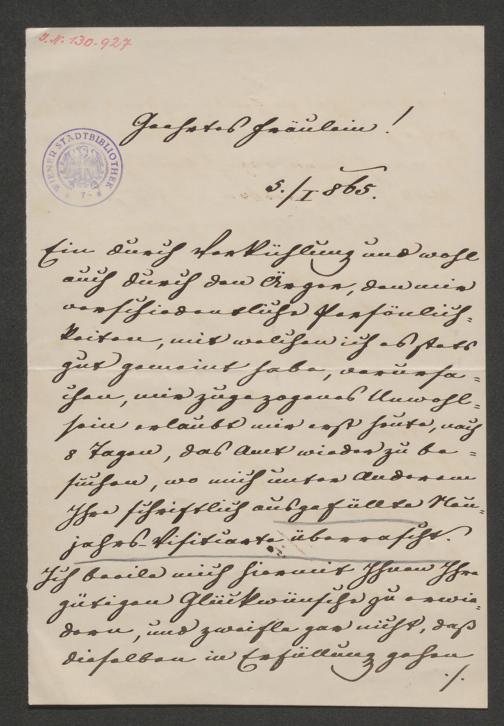 I.N. 130.927
WIENER STADTBIBLIOTHEK
Geehrtes Fräulein!
5./I 865.
Ein durch Verkühlung und wohl
auch durch den Ärger, den mir
verschiedentliche Persönlich=
keiten, mit welchen ich es stets
gut gemeint habe, verursa=
chen, mir zugezogenes Unwohl=
sein erlaubt mir erst heute, nach
8 Tagen, das Amt wieder zu be=
suchen, wo mich unter Anderem
Ihre schriftlich ausgefüllte Neu=
jahrs-Visitkarte überrascht.
Ich beeile mich hiermit Ihnen Ihre
gütigen Glückwünsche zu erwie=
dern, und zweifle gar nicht, daß
dieselben in Erfüllung gehen
./.